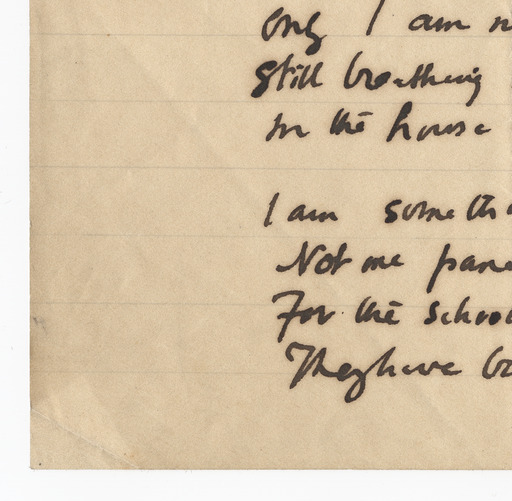 only I am n
Still breathing
In the house
I am someth
Not me pane
For the schoo
They have be